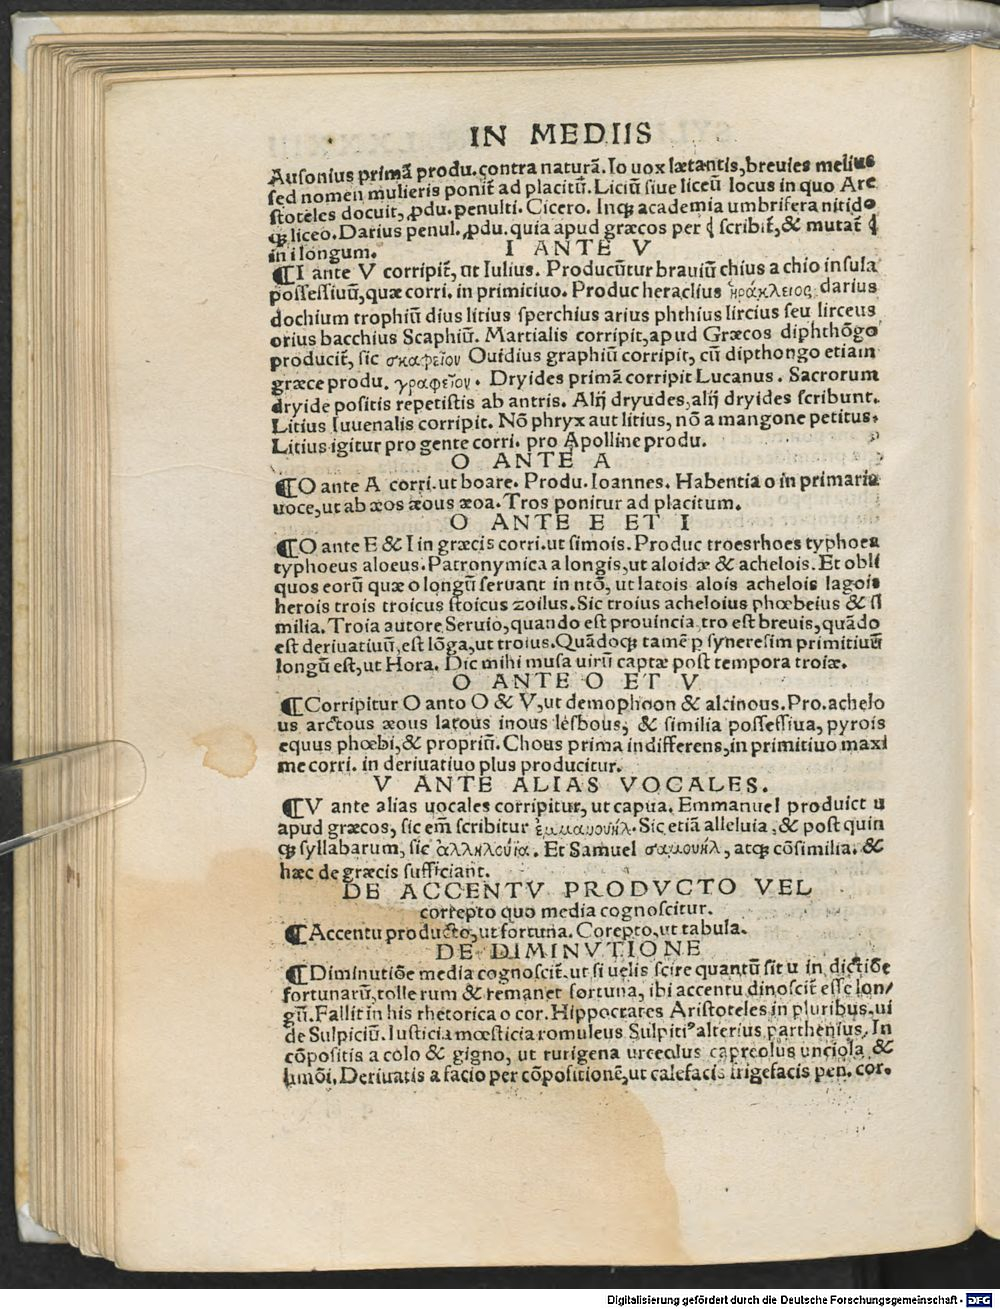 IN MEDIIS
Ausonius primā produ. contra naturā. Io uox lætantis, breuies melius
sed nomen mulieris ponit̄ ad placitū. Liciū siue liceū locus in quo Are
stoteles docuit, ꝓdu. penulti. Cicero. Inqꝫ academia umbrifera nitido
qꝫ liceo. Darius penul. ꝓdu. quia apud græcos per scribit̄, & mutat̄
in i longum.
I ANTE V
¶I ante V corripit̄, ut Iulius. Producūtur brauiū chius a chio insula
possessiuū, quæ corri. in primitiuo. Produc heraclius ἡράκλειος darius
dochium trophiū dius litius sperchius arius phthius lircius seu lirceus
orius bacchius Scaphiū. Martialis corripit, apud Græcos diphthōgo
producit̄, sic σκαφεῖον Ouidius graphiū corripit, cū dipthongo etiam
græce produ. γραφεῖον. Dryides primā corripit Lucanus. Sacrorum
dryide positis repetistis ab antris. Alij dryudes, alij dryides scribunt.
Litius Iuuenalis corripit. Nō phryx aut litius, nō a mangone petitus.
Litius igitur pro gente corri. pro Apolline produ.
O ANTE A
¶O ante A corri. ut boare. Produ. Ioannes. Habentia o in primaria
uoce, ut ab æos æous æoa. Tros ponitur ad placitum.
O ANTE E ET I
¶O ante E & I in græcis corri. ut simois. Produc troesrhoes typhoea
typhoeus aloeus. Patronymica a longis, ut aloidæ & achelois. Et obli
quos eorū quæ o longū seruant in ntō, ut latois alois achelois lagois
herois trois troicus stoicus zoilus. Sic troius acheloius phœbeius & si
milia. Troia autore Seruio, quando est prouincia tro est breuis, quādo
est deriuatiuū, est lōga, ut troius. Quādoqꝫ tamē ꝑ syneresim primitiuū
longū est, ut Hora. Dic mihi musa uirū captæ post tempora troiæ.
O ANTE O ET V
¶Corripitur O anto O & V, ut demophoon & alcinous. Pro. achelo
us arctous æous latous inous lesbous, & similia possessiua, pyrois
equus phœbi, & propriū. Chous prima indifferens, in primitiuo maxi
me corri. in deriuatiuo plus producitur.
V ANTE ALIAS VOCALES.
¶V ante alias uocales corripitur, ut capua. Emmanuel produict u
apud græcos, sic em̄ scribitur ἐμμανουήλ. Sic etiā alleluia, & post quin
qꝫ syllabarum, sic ἀλληλούϊα. Et Samuel σαμουήλ, atqꝫ cōsimilia. &
hæc de græcis sufficiant.
DE ACCENTV PRODVCTO VEL
correpto quo media cognoscitur.
¶Accentu producto, ut fortuna. Corepto, ut tabula.
DE DIMINVTIONE
¶Diminutiōe media cognoscit̄. ut si uelis scire quantū sit u in dictiōe
fortunarū, tolle rum & remanet fortuna, ibi accentu dinoscit̄ esse lon/
gū. Fallit in his rhetorica o cor. Hippocrates Aristoteles in pluribus. ui
de Sulpiciū. Iusticia mœsticia romuleus Sulpitiꝰ alterius parthenius. In
cōpositis a colo & gigno, ut rurigena urceolus capreolus unciola &
limōi. Deriuatis a facio per cōpositionē, ut calefacis frigefacis pen. cor.
Digitalisierung gefördert durch die Deutsche Forschungsgemeinschaft - DFG